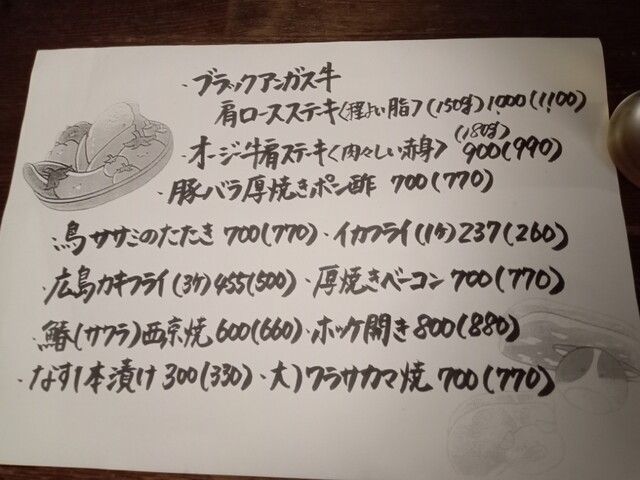 ・ブラックアンガス牛
肩ロースステキ〈程よい脂〉(150g) 1000(1100)
・オージー牛肩ステキ〈肉々しい赤身〉(180g) 900(990)
・豚バラ厚焼きポン酢 700(770)
・鳥ササミのたたき 700(770)・イカフライ(1ケ)237(260)
・広島カキフライ(3ケ)455(500)・厚焼きベーコン 700(770)
・鰆(サワラ)西京焼 600(660)・ホッケ開き 800(880)
・なす1本漬け 300(330)・大)ワラサカマ焼 700(770)